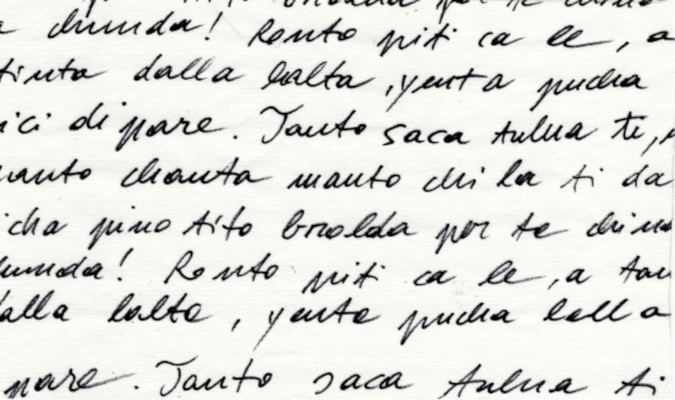 chunda! Ronto piti ca le, a
tinta dalla lalta, yenta pucha
ici di pare. Tanto saca tulua te,
manto chanta manto chi la ti da
icha pino tito brolda por te chino
hunda! Ronto piti ca le, a tan
dalla lalta, yenta pucha lalla
pare. Tanto saca tulua ti